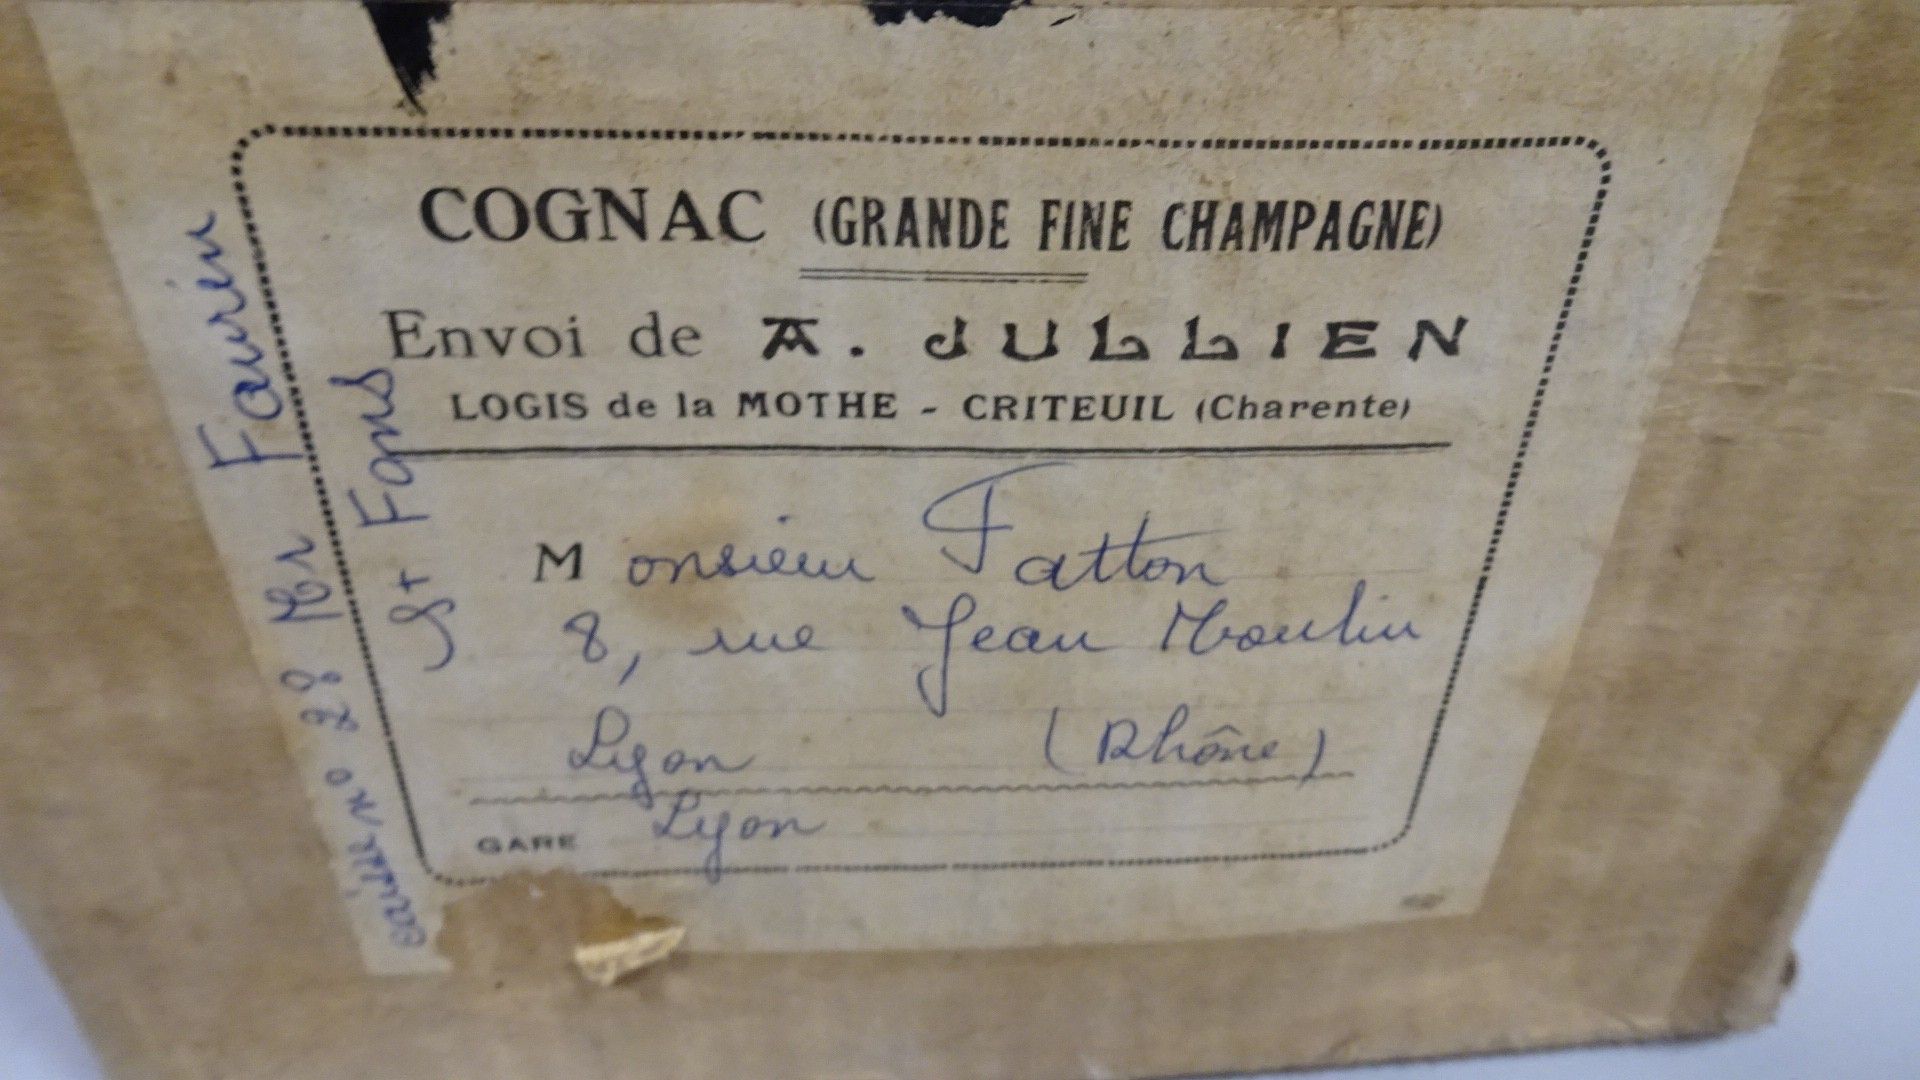 COGNAC (GRANDE FINE CHAMPAGNE)
Envoi de A. JULLIEN
LOGIS de la MOTHE - CRITEUIL (Charente)
Monsieur Fatton
8, rue Jean Moulin
Lyon (Rhône)
GARE Lyon
Mr Faurien
St Fons